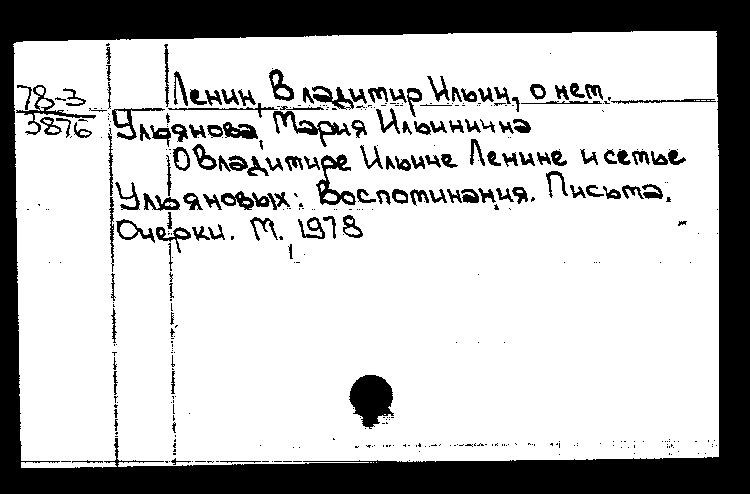 78-3
3876
Ленин, Владимир Ильич, о нем.
Ульянова, Мария Ильинична
О Владимире Ильиче Ленине и семье
Ульяновых: Воспоминания. Письма.
Очерки. М., 1978